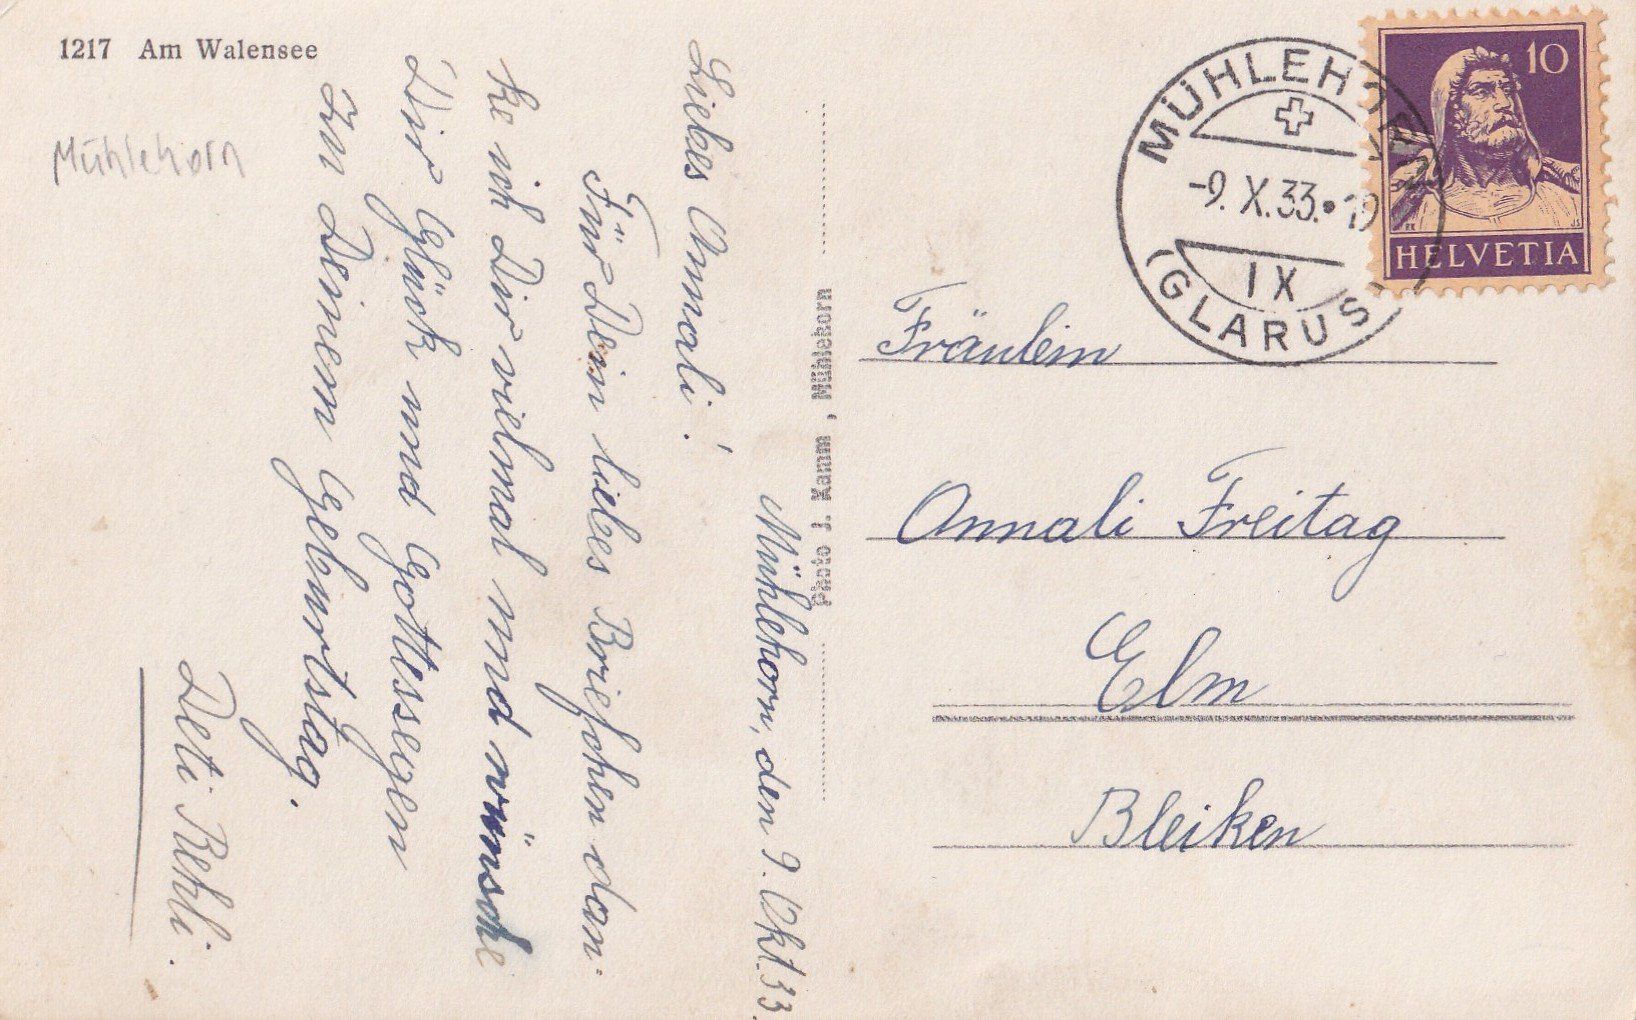 1217 Am Walensee
Mühlehorn
Mühlehorn, den 9. Okt. 33.
Liebes Annali!
Für Dein liebes Briefchen dan-
ke ich Dir vielmal und wünsche
Dir Glück und Gottessegen
zu Deinem Geburtstag.
Deti Rehli.
Photo J. Kamm, Mühlehorn
MÜHLEHORN
-9. X. 33.
IX
(GLARUS)
10
HELVETIA
Fräulein
Annali Freitag
Elm
Bleiken